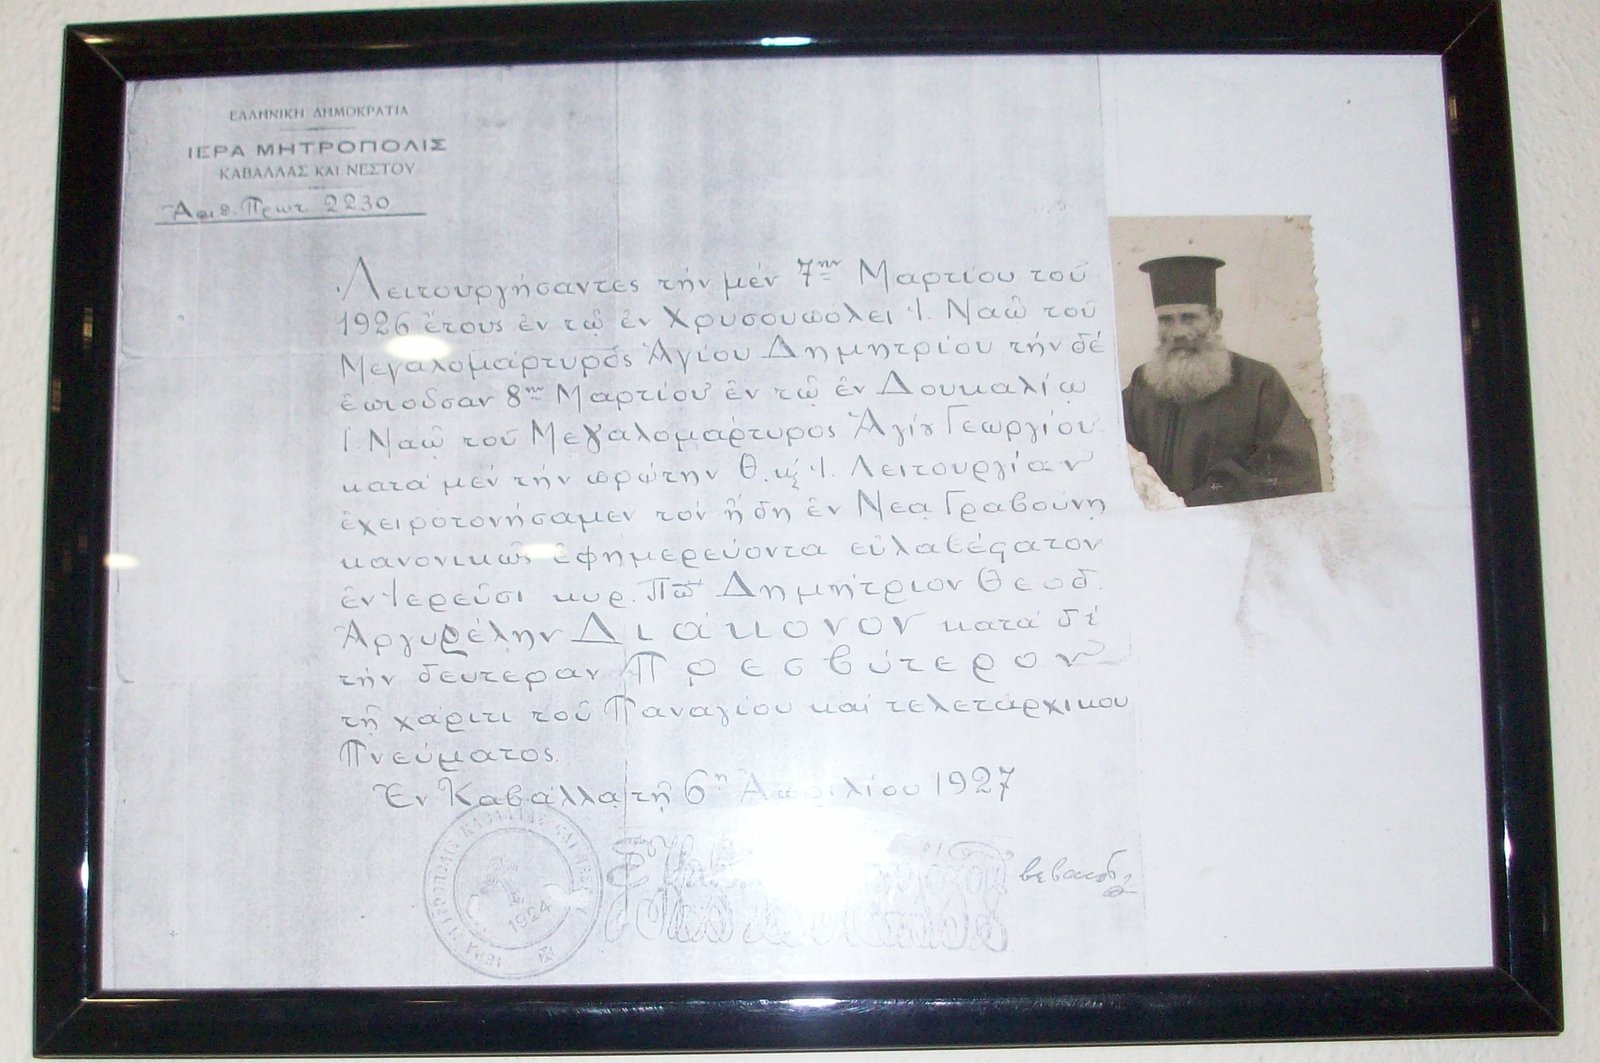 ΕΛΛΗΝΙΚΗ ΔΗΜΟΚΡΑΤΙΑ
ΙΕΡΑ ΜΗΤΡΟΠΟΛΙΣ
ΚΑΒΑΛΛΑΣ ΚΑΙ ΝΕΣΤΟΥ
Ἀριθ. Πρωτ 2230
Λειτουργήσαντες τήν μέν 7ην Μαρτίου τοῦ
1926 ἔτους ἐν τῷ ἐν Χρυσουπόλει Ἱ. Ναῷ τοῦ
Μεγαλομάρτυρος Ἁγίου Δημητρίου τήν δέ
ἐπιοῦσαν 8ην Μαρτίου ἐν τῷ ἐν Δουκαλίῳ
Ἱ. Ναῷ τοῦ Μεγαλομάρτυρος Ἁγίου Γεωργίου
κατά μέν τήν πρώτην Θ. κ Ἱ. Λειτουργίαν
ἐχειροτονήσαμεν τόν ἤδη ἐν Νέᾳ Γραβούνῃ
κανονικῶς ἐφημερεύοντα εὐλαβέστατον
ἐν Ἱερεῦσι κυρ. Δημήτριον Θεοδ.
Ἀργυρέλην Διάκονον κατά δέ
τήν δευτέραν Πρεσβύτερον
τῇ χάριτι τοῦ Παναγίου καί τελεταρχικου
Πνεύματος.
Ἐν Καβάλλᾳ τῇ 6ῃ Ἀπριλίου 1927
ΙΕΡΑ ΜΗΤΡΟΠΟΛΙΣ ΚΑΒΑΛΛΑΣ ΚΑΙ
1924
βεβαιοῖ